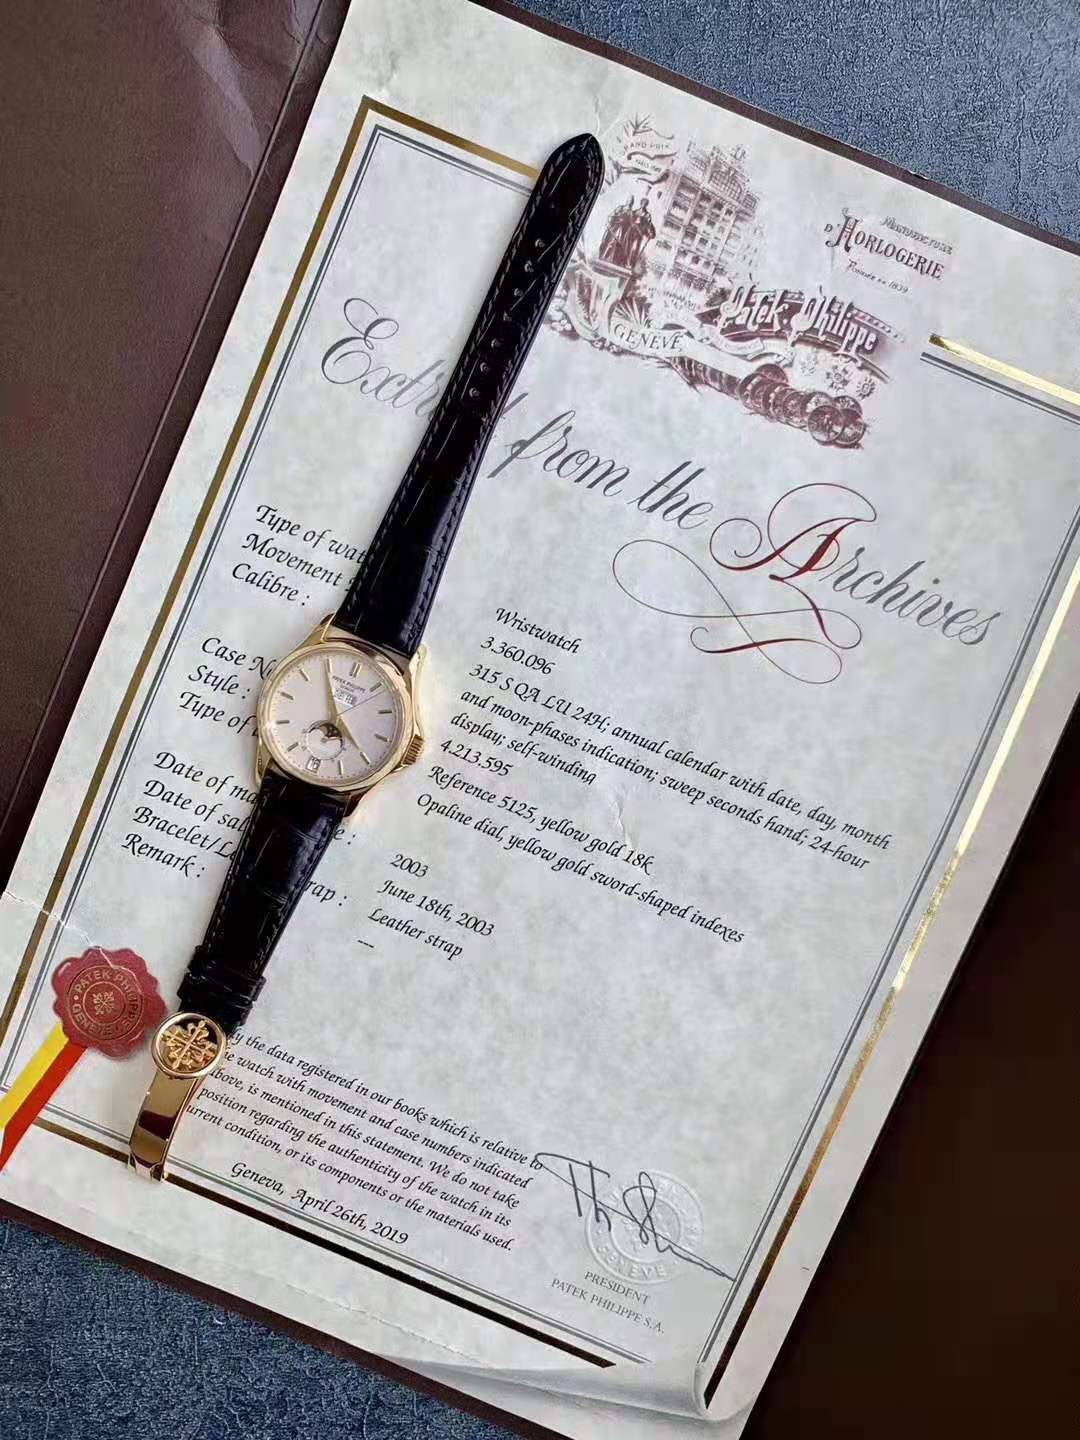 GRAND PRIX
MANUFACTURE
D'HORLOGERIE
FONDÉE EN 1839
Patek Philippe
GENÈVE
Extr from the Archives
Type of wat
Movement
Calibre :
Wristwatch
3.360.096
315 S QA LU 24H; annual calendar with date, day, month
and moon-phases indication; sweep seconds hand; 24-hour
display; self-winding
Case N
4.213.595
Style :
Reference 5125, yellow gold 18k
Type of
Opaline dial, yellow gold sword-shaped indexes
Date of ma e :
2003
Date of sal
June 18th, 2003
Bracelet/ rap :
Leather strap
Remark :
---
PATEK PHILIPPE
GENEVE
PATEK PHILIPPE
GENEVE
y the data registered in our books which is relative to
he watch with movement and case numbers indicated
above, is mentioned in this statement. We do not take
position regarding the authenticity of the watch in its
urrent condition, or its components or the materials used.
Geneva, April 26th, 2019
GENEVE
PRESIDENT
PATEK PHILIPPE S.A.